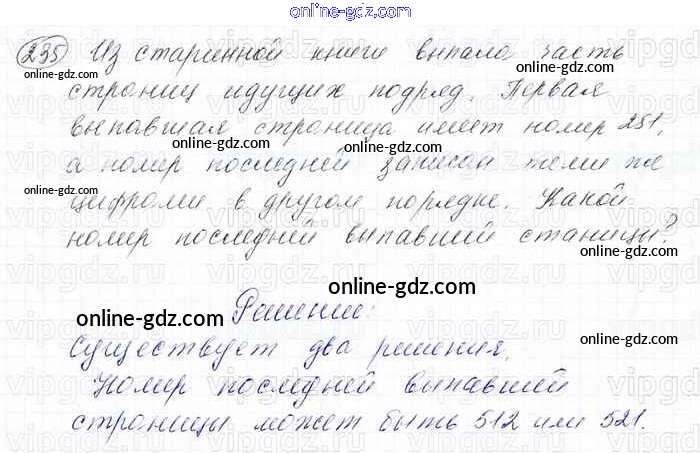 online-gdz.com
235 Из старинной книги выпала часть
online-gdz.com online-gdz.com
страниц идущих подряд. Первая
online-gdz.com
выпавшая страница имеет номер 251,
online-gdz.com
а номер последней записан теми же
online-gdz.com online-gdz.com
цифрами в другом порядке. Какой
номер последней выпавшей станицы?
online-gdz.com
online-gdz.com Решение:
online-gdz.com
Существует два решения.
Номер последней выпавшей
online-gdz.com online-gdz.com
страницы может быть 512 или 521.